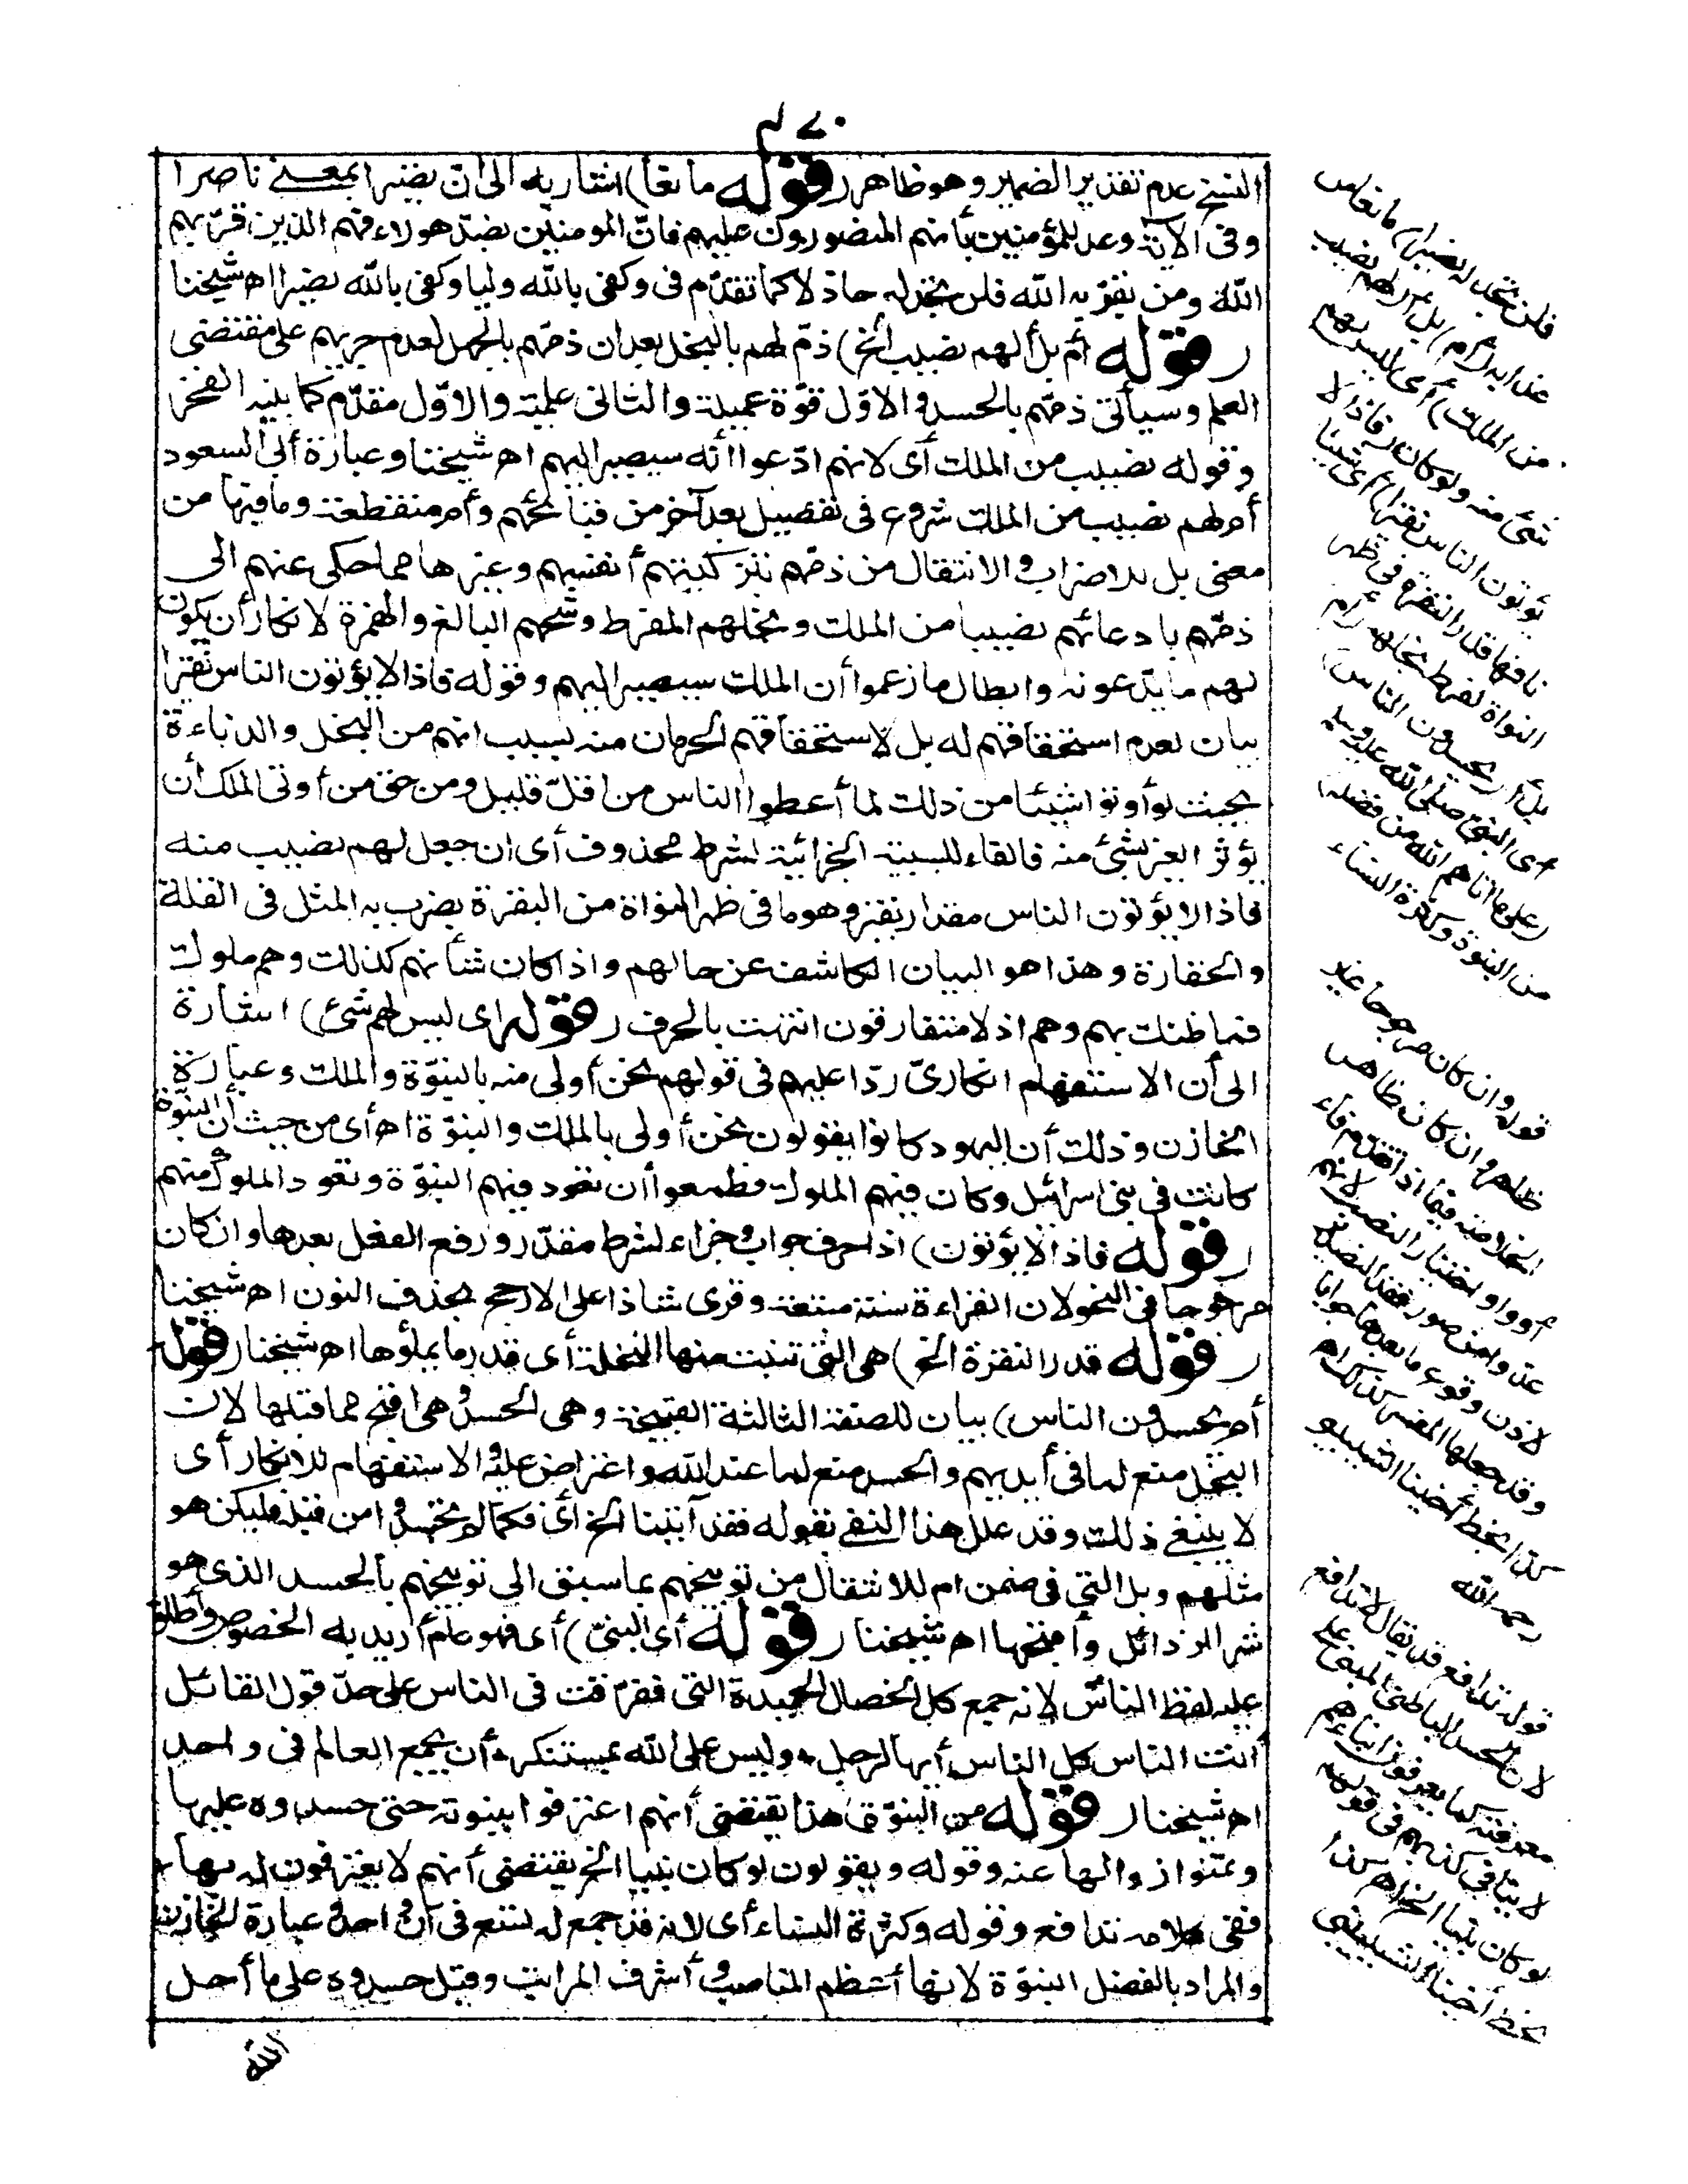 ٤٧٠
النسخ عدم تقدير الضمير وهو ظاهر (قوله مانعا) أشار به الى ان نصيرا بمعنى ناصرا
وفى الآية وعد للمؤمنين بأنهم المنصورون عليهم فان المومنين بضد هولاء فهم الذين قربهم
الله ومن يقربه الله فلن تجد له خاذلا كما تقدم فى وكفى بالله وليا وكفى بالله نصيرا اه شيخنا
(قوله أم بل ألهم نصيب الخ) ذم لهم بالبخل بعد ان ذمهم بالجهل لعدم جريهم على مقتضى
العلم وسيأتى ذمهم بالحسد والاول قوة عملية والثانى علمية والاول مقدم كما بينه الفخر
وقوله نصيب من الملك أى لانهم ادعوا أنه سيصير اليهم اه شيخنا وعبارة أبى السعود
أم لهم نصيب من الملك شروع فى تفصيل بعد آخر من قبائحهم وأم منقطعة وما فيها من
معنى بل للاضراب والانتقال من ذمهم بتزكيتهم أنفسهم وغيرها مما حكى عنهم الى
ذمهم بادعائهم نصيبا من الملك وبخلهم المفرط وشحهم البالغ والهمزة لانكار أن يكون
لهم ما يدعونه وابطال ما زعموا أن الملك سيصير اليهم وقوله فاذا لا يؤتون الناس نقيرا
بيان لعدم استحقاقهم له بل لاستحقاقهم الحرمان منه بسبب انهم من البخل والدناءة
بحيث لو أوتوا شيئا من ذلك لما أعطوا الناس من اقل قليل ومن حق من أوتى الملك أن
يؤثر الغير بشئ منه فالفاء للسببية الجزائية لشرط محذوف أى ان جعل لهم نصيب منه
فاذا لا يؤتون الناس مقدار نقير وهو ما فى ظهر النواة من النقرة يضرب به المثل فى القلة
والحقارة وهذا هو البيان الكاشف عن حالهم واذا كان شأنهم كذلك وهم ملوك
فما ظنك بهم وهم اذلا متفارقون انتهت بالحرف (قوله اى ليس لهم شئ) اشارة
الى أن الاستفهام انكارى ردا عليهم فى قولهم نحن أولى منه بالنبوة والملك وعبارة
الخازن وذلك أن اليهود كانوا يقولون نحن أولى بالملك والنبوة اه أى من حيث أن النبوة
كانت فى بنى اسرائيل وكان فيهم الملوك فطمعوا أن تعود فيهم النبوة وتعود الملوك منهم
(قوله فاذا لا يؤتون) اذا حرف جواب وجزاء لشرط مقدر ورفع الفعل بعدها وان كان
مرجوحا فى النحو لان القراءة سنة متبعة وقرى شاذا على الارجح بحذف النون اه شيخنا
(قوله قدر النقرة الخ) هى التى تنبت منها النخلة أى قدر ما يملؤها اه شيخنا (قوله
أم يحسدون الناس) بيان للصفة الثالثة القبيحة وهى الحسد وهى اقبح مما قبلها لان
البخل منع لما فى أيديهم والحسد منع لما عند الله واعتراض عليه والاستفهام للانكار أى
لا ينبغى ذلك وقد علل هذا النفى بقوله فقد آتينا الخ أى فكما لم يحسدوا من قبله فليكن هو
مثلهم وبل التى فى ضمن ام للانتقال من توبيخهم بما سبق الى توبيخهم بالحسد الذى هو
شر الرذائل وأقبحها اه شيخنا (قوله أى النبى) أى فهو عام أريد به الخصوص وأطلق
عليه لفظ الناس لانه جمع كل الخصال الحميدة التى تفرقت فى الناس على حد قول القائل
أنت الناس كل الناس أيها الرجل وليس على الله بمستنكر أن يجمع العالم فى واحد
اه شيخنا (قوله من النبوة) هذا يقتضى أنهم اعترفوا بنبوته حتى حسدوه عليها
وتمنوا زوالها عنه وقوله ويقولون لو كان نبيا الخ يقتضى أنهم لا يعترفون له بها
ففى كلامه تدافع وقوله وكثرة النساء أى لانه قد جمع له تسع فى آن واحد وعبارة الخازن
والمراد بالفضل النبوة لانها أعظم المناصب وأشرف المراتب وقيل حسدوه على ما أحل
الله
فلن تجد له نصيرا) مانعا من
عذابه (أم) بل أ (لهم نصيب
من الملك) أى ليس لهم
شئ منه ولو كان (فاذا لا
يؤتون الناس نقيرا) أى شيئا
تافها قدر النقرة فى ظهر
النواة لفرط بخلهم (أم)
بل أ (يحسدون الناس)
أى النبى صلى الله عليه وسلم
(على ما آتاهم الله من فضله)
من النبوة وكثرة النساء
قوله وان كان مرجوحا غير
ظاهر وان كان ظاهر
الخلاصة فيما اذا تقدم فاء
أو واو اختيار النصب لانهم
لاذن وقوع ما بعدها جوابا
كذا بخط أخينا الشبيلبو
رحمه الله
قوله تدافع قد يقال لا تدافع
لان الحسد الباطنى المبنى على
معرفته كما يعرفون ابناءهم
لا ينافى كذبهم فى قولهم
لو كان نبيا الخ اه كذا
بخط أخينا الشبيلبى